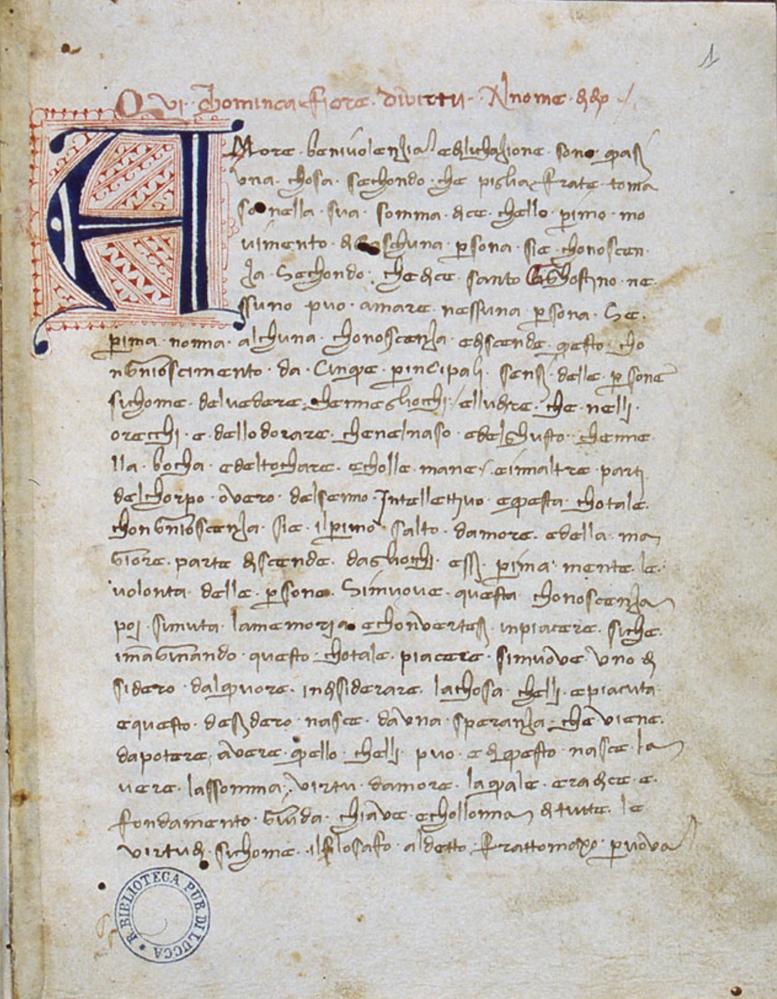 1
Qvi chominca fiore divirtu Al nome
AMore benivolenzia e dilichazione sono quasi
una chosa sechondo che piglia frate toma
so nella sua somma dice chello primo mo
vimento di ciaschuna persona sie chonoscen
za Sechondo che dice santo Ghostino ne
ssuno puo amare nessuna persona Se
prima nonna alchuna chonoscenza e discende questo cho
ngnioscimento da Cinque principali sensi delle persone
sichome del vedere chenne gliocchi elludire che nelli
orecchi e dello dorare chenelnaso edelghusto chenne
lla bocha edeltochare echolle mane einnaltre parti
delchorpo overo delsenno Intellettivo equesta chotale
chongnioscenza sie ilprimo salto damore edella ma
giore parte discende dagliocchi essi prima mente le
volonta delle persone Simuove questa chonoscenza
poi simuta lamemoria echonvertesi inpiacere siche
imaginando questo chotale piacere simuove uno di
sidero dalquore indisiderare lachosa chelli epiaciuta
equesto desidero nasce dauna speranza che viene
dapotere avere quello chelli puo edi questo nasce la
vere lassomma virtu damore laquale eradice e
fondamento guida chiave echollonna ditutte le
virtudi sichome ilfilosafo aldetto pruova
R. BIBLIOTECA PUB. DI LUCCA